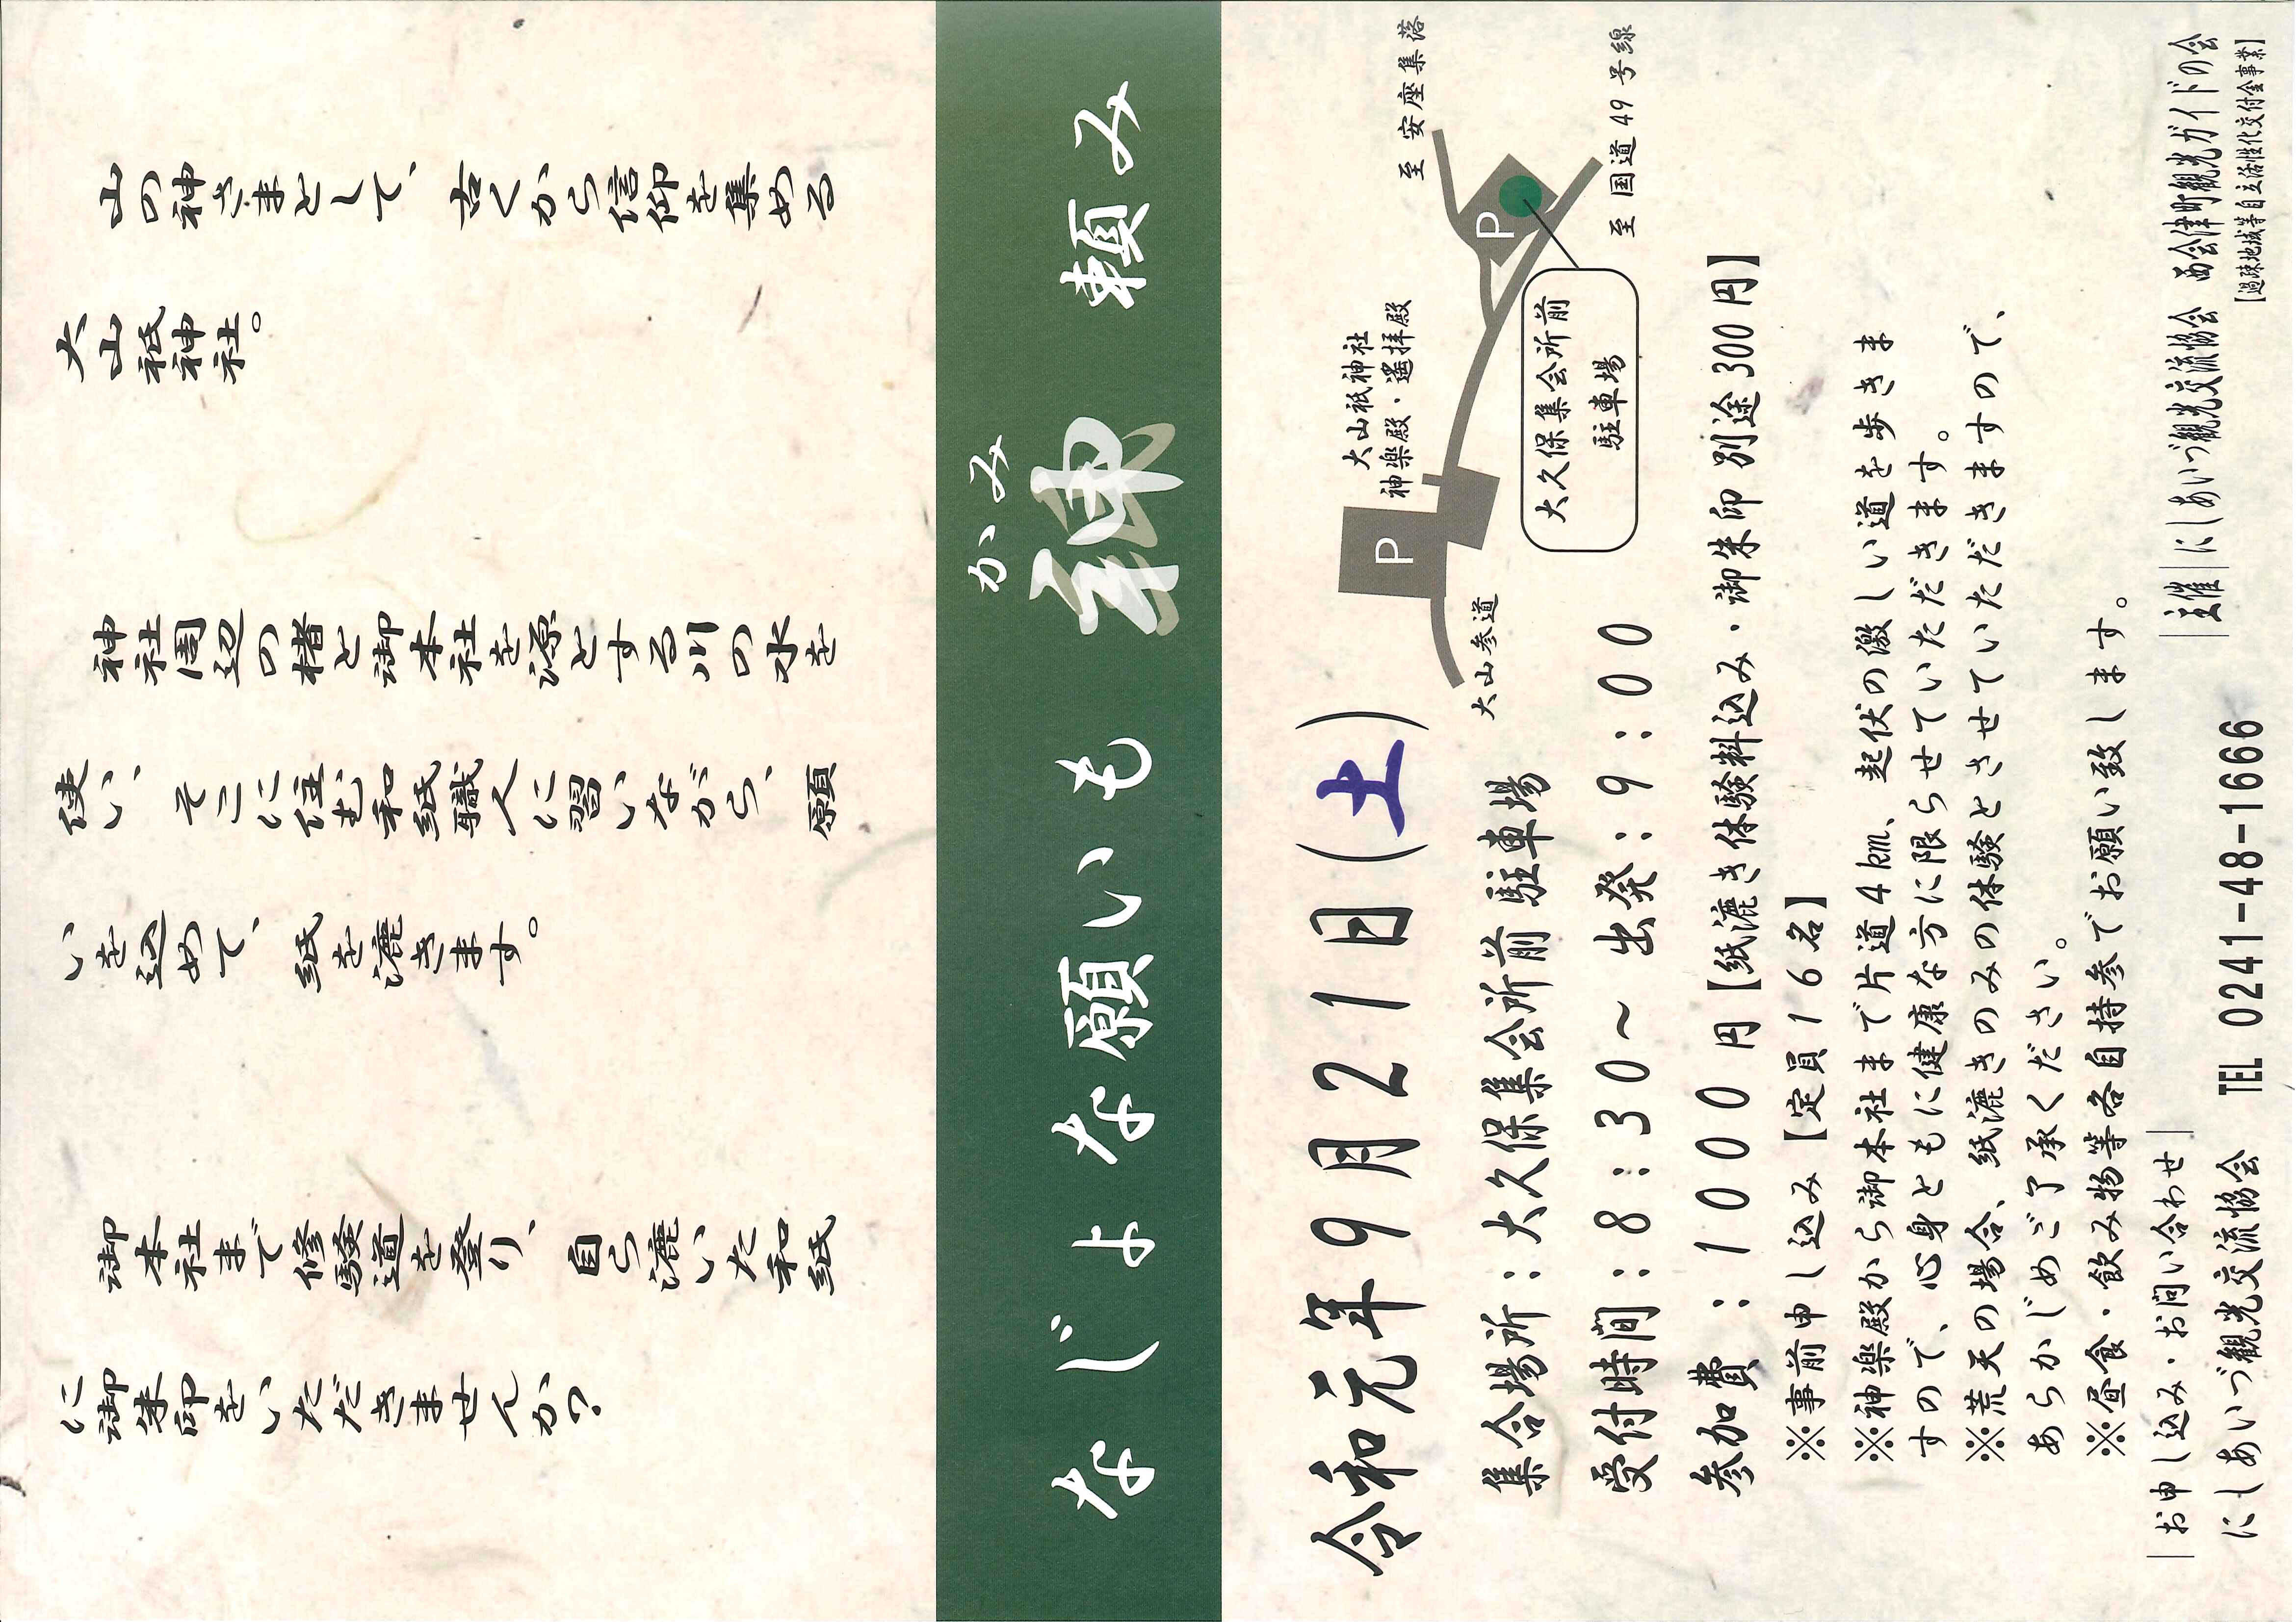 山の神さまとして、古くから信仰を集める
大山祇神社。
神社周辺の楮と御本社を源とする川の水を
使い、そこに住む和紙職人に習いながら、願
いを込めて、紙を漉きます。
御本社まで修験道を登り、自ら漉いた和紙
に御朱印をいただきませんか?
かみ
なじょな願いも 神 頼み
令和元年9月21日(土)
集合場所:大久保集会所前 駐車場
受付時間:8:30~ 出発:9:00
参加費 :1000 円【紙漉き体験料込み・御朱印 別途 300 円】
※事前申し込み【定員16名】
※神楽殿から御本社まで片道4km、起伏の激しい道を歩きま
すので、心身ともに健康な方に限らせていただきます。
※荒天の場合、紙漉きのみの体験とさせていただきますので、
あらかじめご了承ください。
※昼食・飲み物等各自持参でお願い致します。
至 安座集落
至 国道49号線
P
大久保集会所前
駐車場
大山祇神社
神楽殿・遥拝殿
P
大山参道
|お申し込み・お問い合わせ|
にしあいづ観光交流協会 TEL 0241-48-1666
|主催|にしあいづ観光交流協会 西会津町観光ガイドの会
【過疎地域等自立活性化交付金事業】